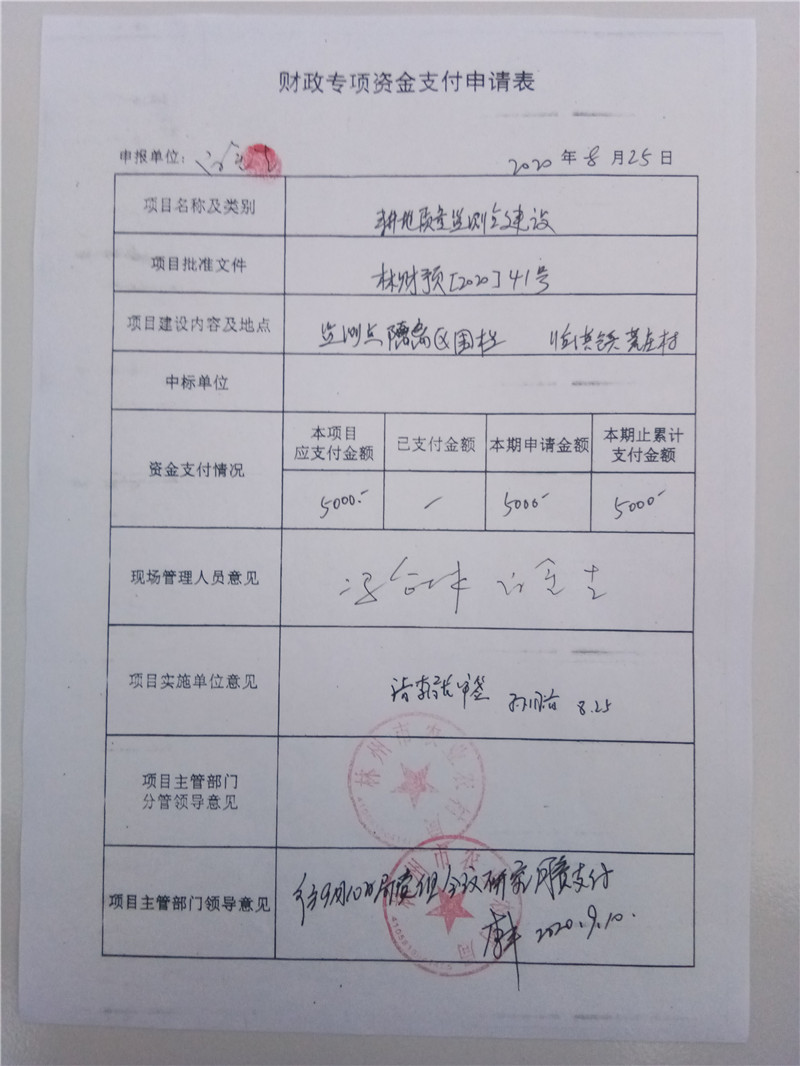 财政专项资金支付申请表
申报单位：
2020 年 8 月 25 日
项目名称及类别
耕地质量监测点建设
项目批准文件
林财预[2020]41号
项目建设内容及地点
监测点隔离区围栏 临淇镇黄庄村
中标单位
资金支付情况
本项目
应支付金额
已支付金额
本期申请金额
本期止累计
支付金额
5000.-
-
5000-
5000-
现场管理人员意见
项目实施单位意见
8.25
项目主管部门
分管领导意见
林州市农业农村局
项目主管部门领导意见
9月10日局党组会议研究同意支付
2020.9.10.
林州市农业农村局